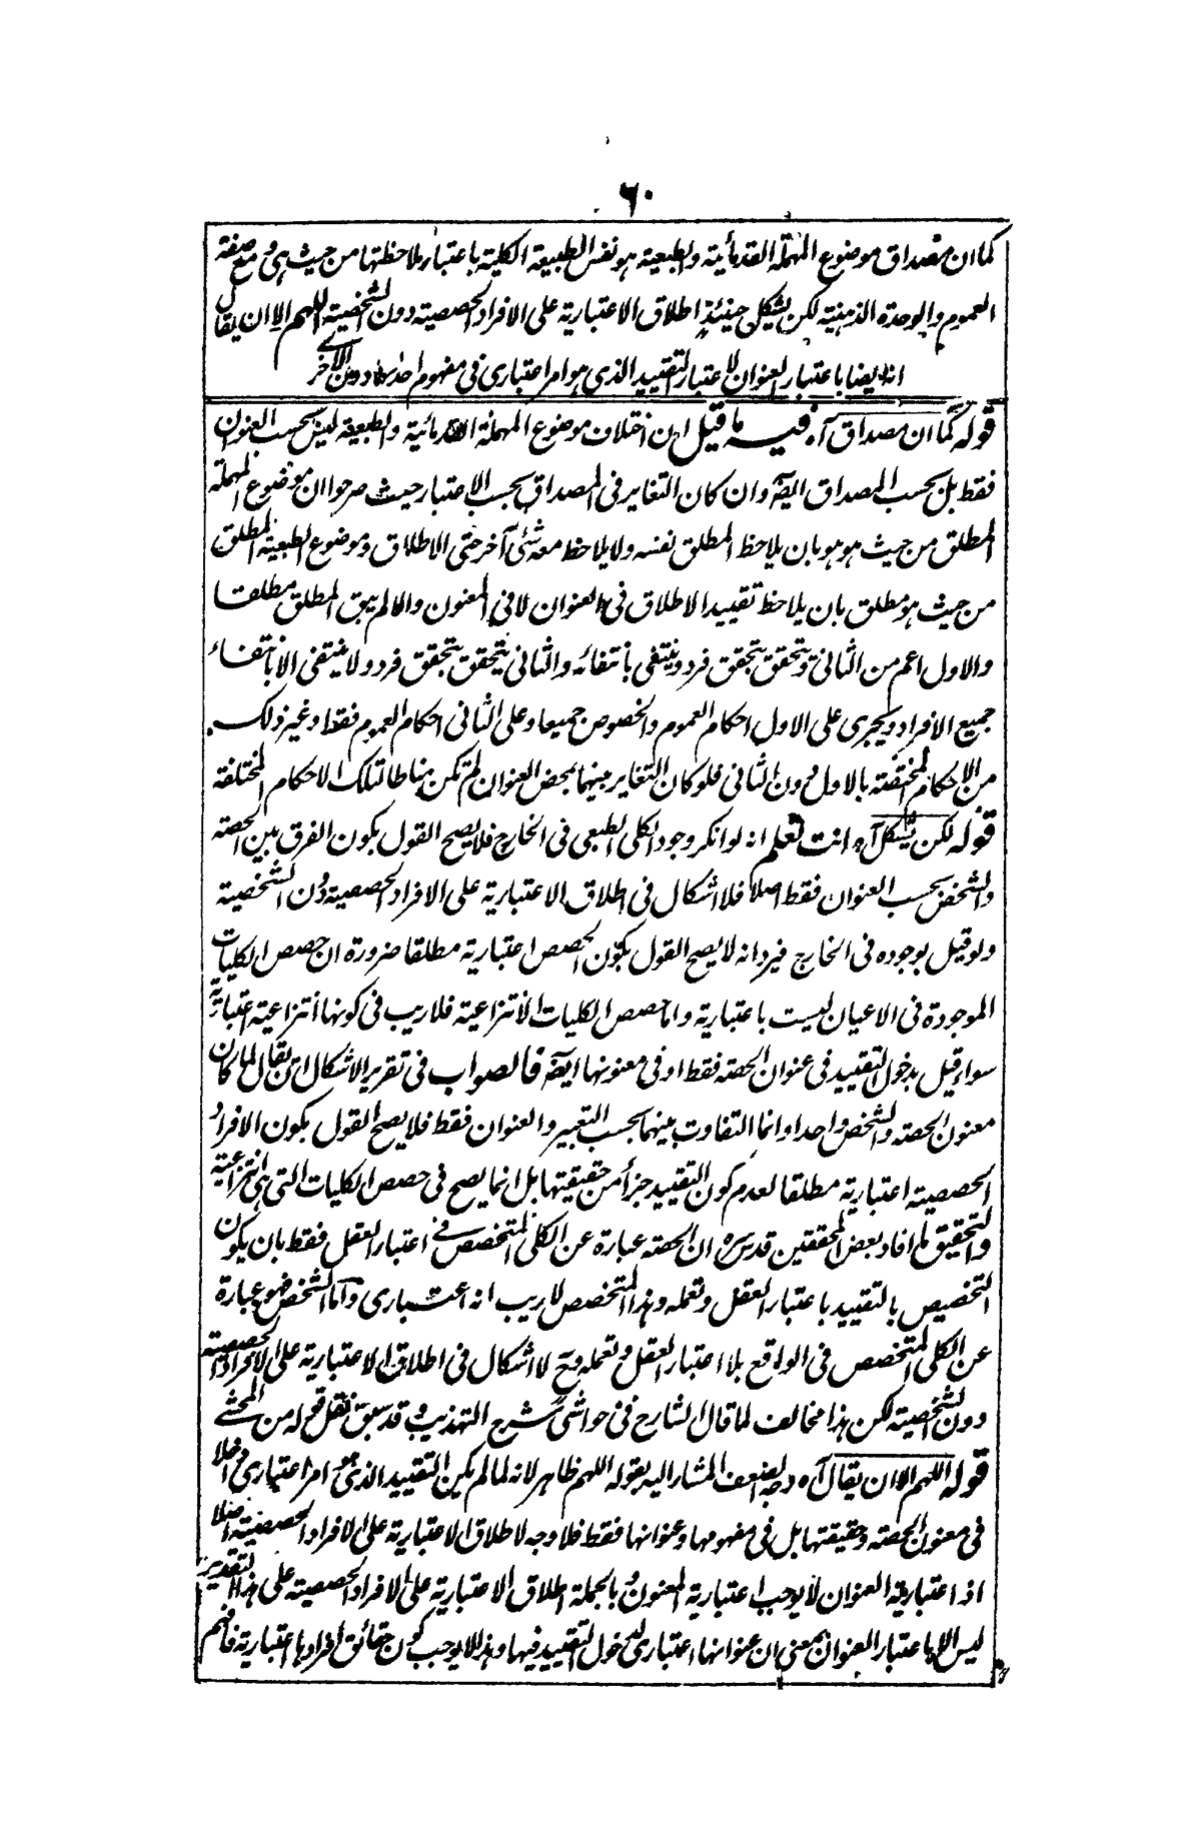 ٦٠
كما ان مصداق موضوع المهملة القدمائية والطبعية هو نفس الطبيعة الكلية باعتبار ملاحظتها من حيث هي و مع صفة
العموم والوحدة الذهنية لكن يشكل حينئذ اطلاق الاعتبارية على الافراد الحصصية دون الشخصية اللهم الا ان يقال
انه ايضا باعتبار العنوان لاعتبار التقييد الذي هو امر اعتباري في مفهوم احدهما دون الآخر
قوله كما ان مصداق آه فيه ما قيل ان اختلاف موضوع المهملة القدمائية والطبعية ليس بحسب العنوان
فقط بل بحسب المصداق ايضا وان كان التغاير في المصداق بحسب الاعتبار حيث صرحوا ان موضوع المهملة
المطلق من حيث هو هو بان يلاحظ المطلق نفسه ولا يلاحظ معه شئ آخر حتى الاطلاق و موضوع الطبعية المطلق
من حيث هو مطلق بان يلاحظ تقييد الاطلاق في العنوان لا في المعنون والا لم يبق المطلق مطلقا
والاول اعم من الثاني و تحقق بتحقق فرد وينتفى بانتفائه والثاني يتحقق بتحقق فرد ولا ينتفى الا بانتفاء
جميع الافراد ويجرى على الاول احكام العموم والخصوص جميعا وعلى الثاني احكام العموم فقط وغير ذلك
من الاحكام المختصة بالاول دون الثاني فلو كان التغاير بينهما بمحض العنوان لم تكن مناطا لتلك الاحكام المختلفة
قوله لكن يشكل آه انت تعلم انه لو انكر وجود الكلى الطبعى في الخارج فلا يصح القول بكون الفرق بين الحصة
والشخص بحسب العنوان فقط اصلا فلا اشكال في اطلاق الاعتبارية على الافراد الحصصية دون الشخصية
ولو قيل بوجوده في الخارج فيرد انه لا يصح القول بكون الحصص اعتبارية مطلقا ضرورة ان حصص الكليات
الموجودة في الاعيان ليست باعتبارية واما حصص الكليات الانتزاعية فلا ريب في كونها انتزاعية اعتبارية
سواء قيل بدخول التقييد في عنوان الحصة فقط او في معنونها ايضا فالصواب في تقرير الاشكال ان يقال لما كان
معنون الحصة والشخص واحدا وانما التفاوت بينهما بحسب التعبير والعنوان فقط فلا يصح القول بكون الافراد
الحصصية اعتبارية مطلقا لعدم كون التقييد جزأ من حقيقتها بل انما يصح في حصص الكليات التى هى انتزاعية
والتحقيق ما افاد بعض المحققين قدس سره ان الحصة عبارة عن الكلى المتخصص في اعتبار العقل فقط بان يكون
التخصيص بالتقييد باعتبار العقل وتعمله وهذا المتخصص لا ريب انه اعتبارى واما الشخص فهو عبارة
عن الكلى المتخصص في الواقع بلا اعتبار العقل وتعمله وح لا اشكال في اطلاق الاعتبارية على الافراد الحصصية
دون الشخصية لكن هذا مخالف لما قال الشارح في حواشى شرح التهذيب و قد سبق نقل قوله من المحشى
قوله اللهم الا ان يقال آه وجه الضعف المشار اليه بقوله اللهم ظاهر لانه لما لم يكن التقييد الذى هو امر اعتبارى داخلا
فى معنون الحصة وحقيقتها بل فى مفهومها وعنوانها فقط فلا وجه لاطلاق الاعتبارية على الافراد الحصصية اصلا
اذ اعتبارية العنوان لا يوجب اعتبارية المعنون و بالجملة اطلاق الاعتبارية على الافراد الحصصية على هذا التقدير
ليس الا باعتبار العنوان بمعنى ان عنوانها اعتبارى لدخول التقييد فيها وهذا لا يوجب كون حقائق افرادها اعتبارية فافهم